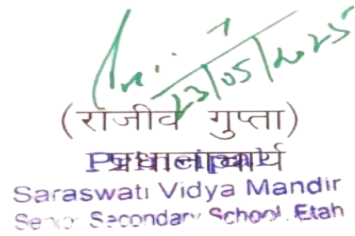 23/05/2025
(राजीव गुप्ता)
प्रधानाचार्य
Principal
Saraswati Vidya Mandir
Senior Secondary School, Etah